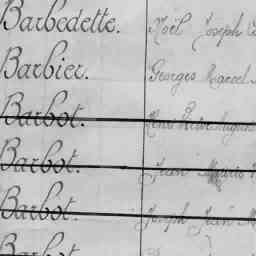 Barbedette. Noël Joseph
Barbier. Georges Marcel
Barbot. Henri
Barbot. Jean Marie
Barbot. Joseph Jean M
Barbot.